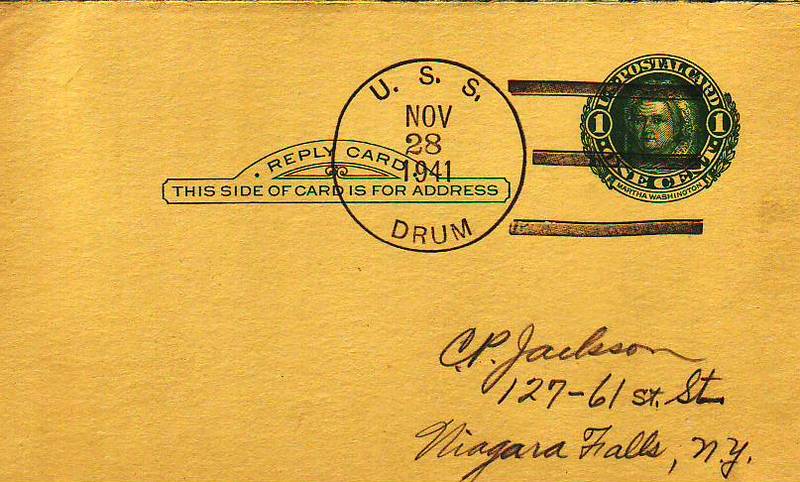 U. S. S.
NOV
28
1941
DRUM
U.S. POSTAL CARD
1 1
ONE CENT
MARTHA WASHINGTON
REPLY CARD
THIS SIDE OF CARD IS FOR ADDRESS
C.P. Jackson
127-61 st. St.
Niagara Falls, N.Y.